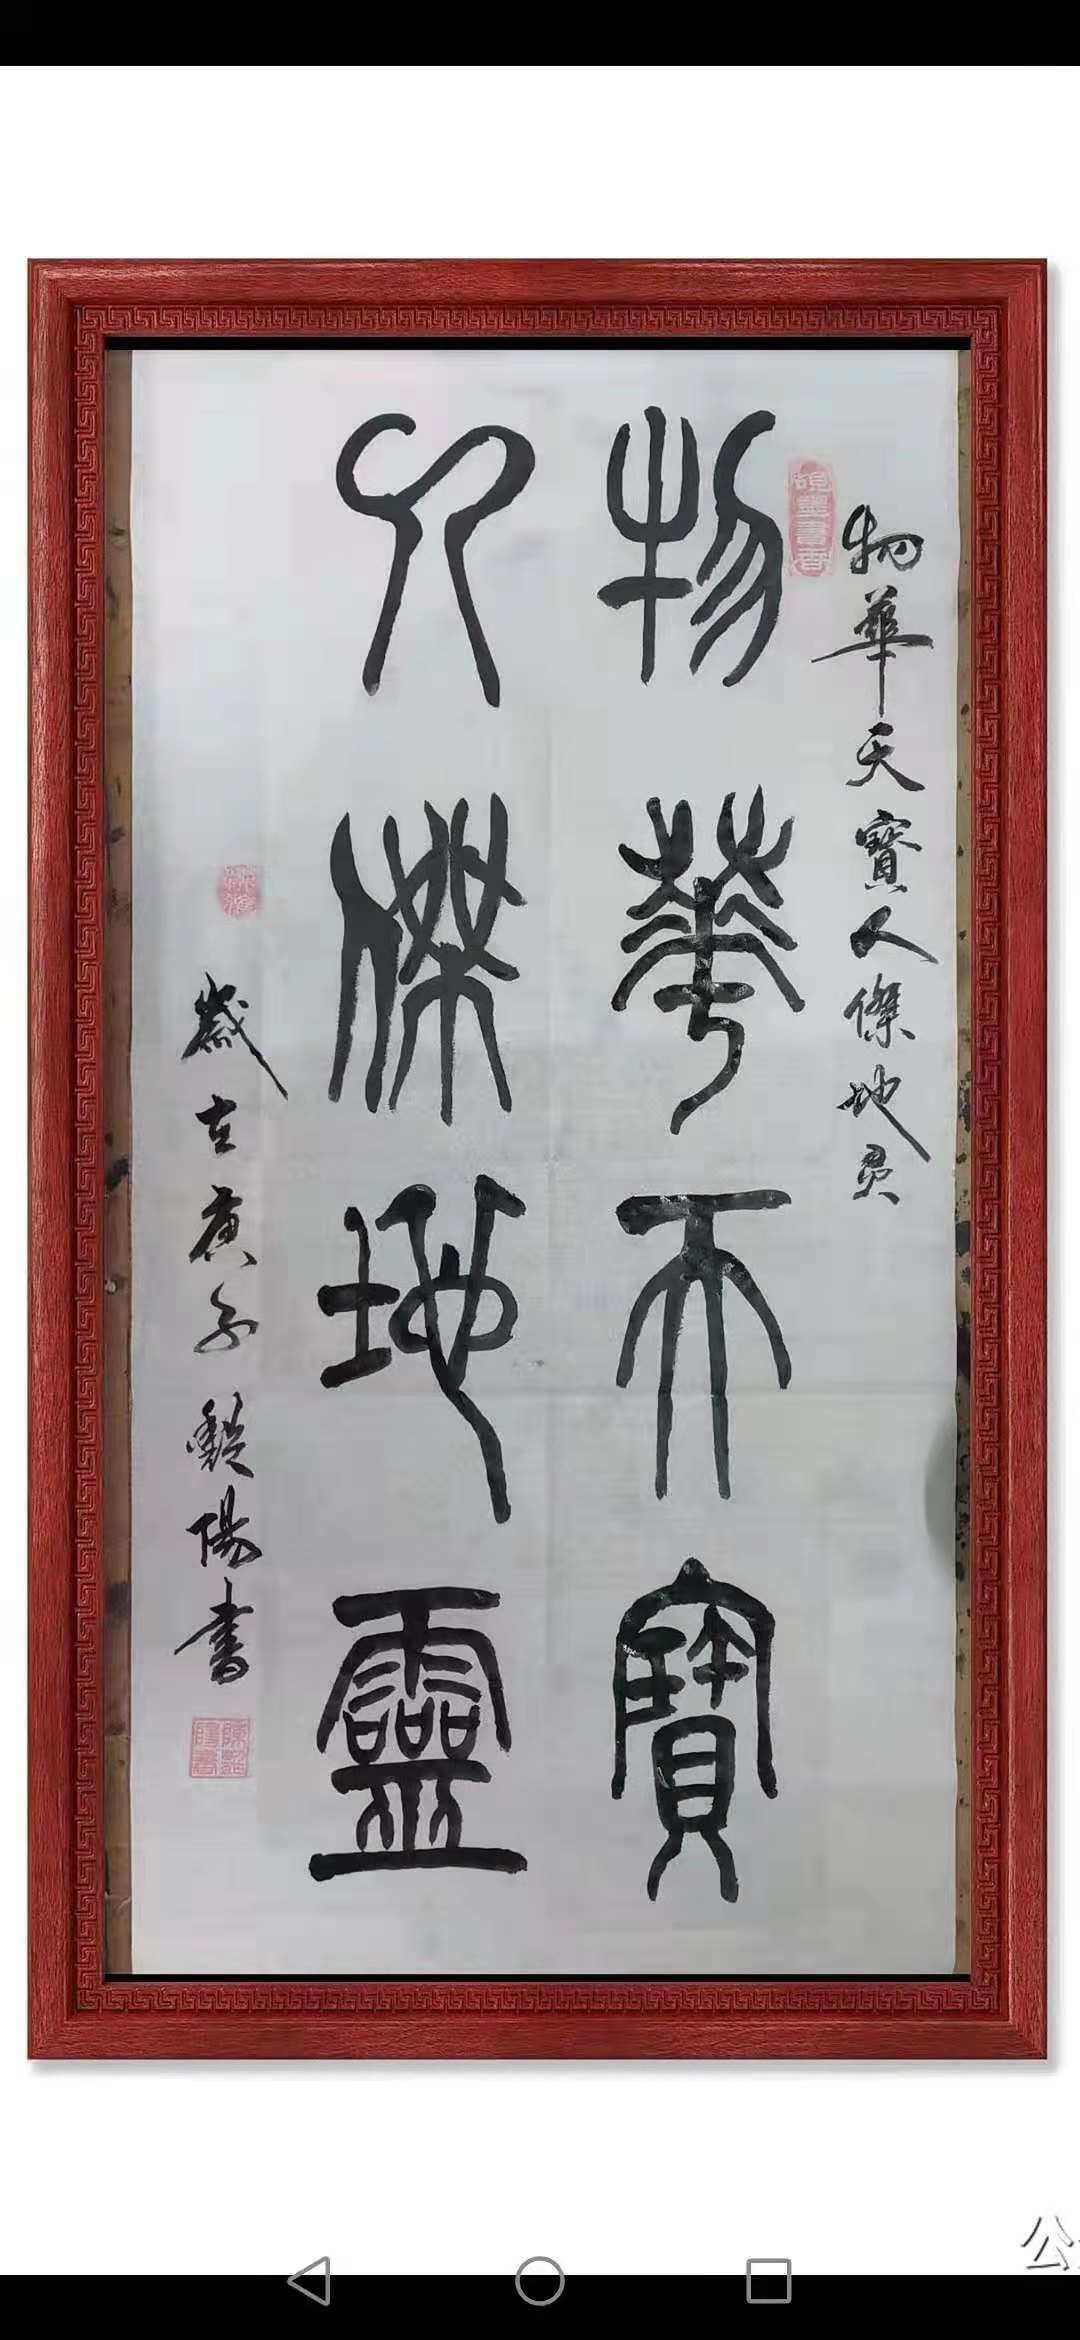 物華天寶人傑地灵
物華天寶
人傑地靈
歲在庚子
陽書
公